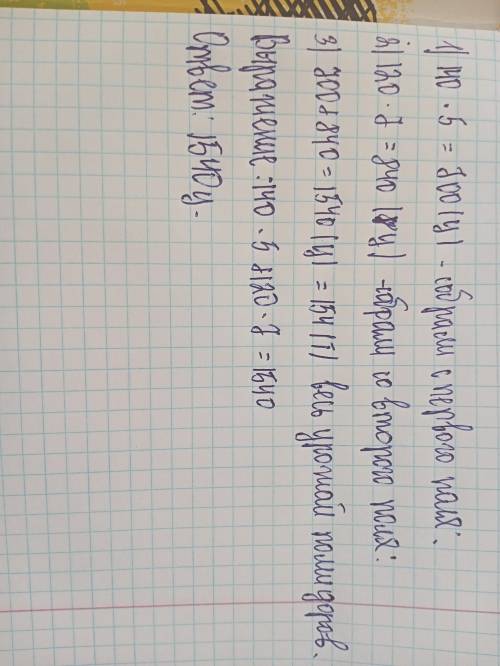 1) 140 · 5 = 700 (ц) - собрали с первого поля.
2) 120 · 7 = 840 (ц) - собрали со второго поля.
3) 700 + 840 = 1540 (ц) = 154 (т) весь урожай помидоров.
Выражение: 140 · 5 + 120 · 7 = 1540
Ответ: 1540 ц.